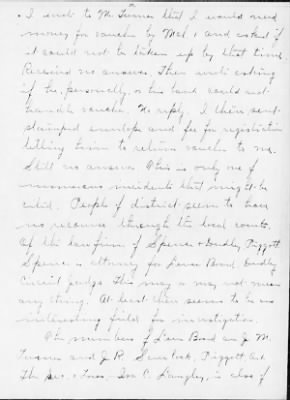 . I wrote to Mr. Turner that I would need
money for voucher by Oct 1 and asked if
it could not be taken up by that time.
Received no answer. Then wrote asking
if he, personally, or his bank could not
handle voucher. No reply. I then sent
stamped envelope and fee for registration
telling him to return voucher to me.
Still no answer. This is only one of
numerous incidents that might be
cited. People of district seem to have
no recourse through the local courts.
Of the law firm of Spence & Dudley, Piggott
Spence is attorney for Levee Board. Dudley
Circuit Judge. This may or may not mean
anything. At least there seems to be an
interesting field for investigation.
The members of Levee Board are J. M.
Turner and J. R. Piggott, Ark
The Sec. & Treas. C. Langley, is also of